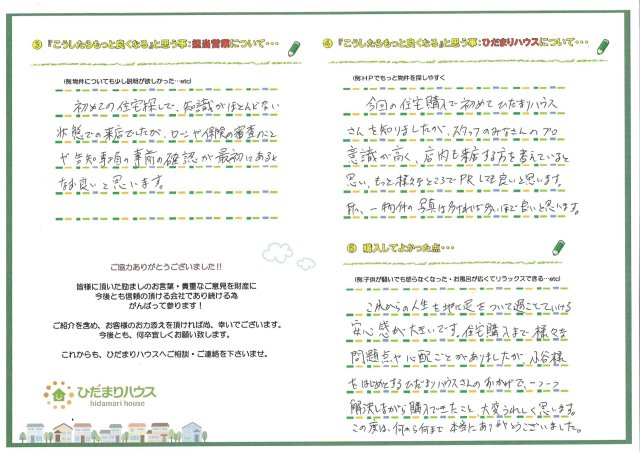 ③『こうしたらもっと良くなる』と思う事：担当営業について・・・
(例:物件についても少し説明が欲しかった…etc)
初めての住宅探しで、知識がほとんどない
状態での来店でしたが、ローンや保険の審査のこと
や告知事項の事前の確認が最初にあると
なお良いと思います。
ご協力ありがとうございました!!
皆様に頂いた励ましのお言葉・貴重なご意見を財産に
今後とも信頼の頂ける会社であり続ける為
がんばって参ります！
ご紹介を含め、お客様のお力添えを頂ければ尚、幸いでございます。
今後とも、何卒宜しくお願い致します。
これからも、ひだまりハウスへご相談・ご連絡を下さいませ。
ひだまりハウス
hidamari house
④『こうしたらもっと良くなる』と思う事：ひだまりハウスについて・・・
(例:HPでもっと物件を探しやすく
今回の住宅購入で初めてひだまりハウス
さんを知りましたが、スタッフのみなさんのプロ
意識が高く、店内も来店する方を考えていると
思い、もっと様々なところでPRしても良いと思います。
一物件の写真は多ければ多いほど良いと思います。
⑤ 購入してよかった点・・・
(例:子供が騒いでも怒らなくなった・お風呂が広くてリラックスできる…etc)
これからの人生を地に足をついて過ごしていける
安心感が大きいです。住宅購入まで様々な
問題点や心配ごとがありましたが、様
をはじめとするひだまりハウスさんのおかげで、一つ一つ
解決しながら購入できたこと、大変うれしく思います。
この度は、何から何まで本当にありがとうございました。